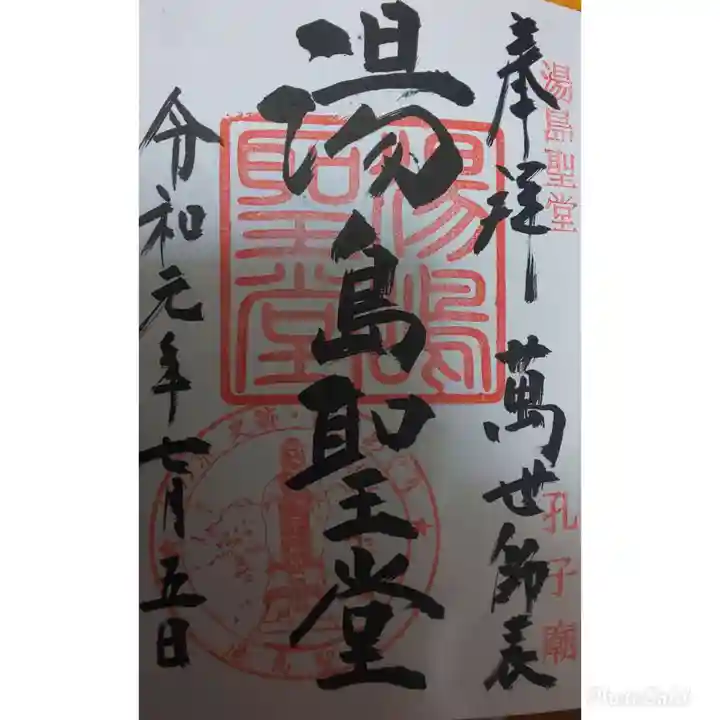 湯島聖堂
孔子廟
奉拝 萬世師表
湯島聖堂
湯島聖堂
令和元年七月五日